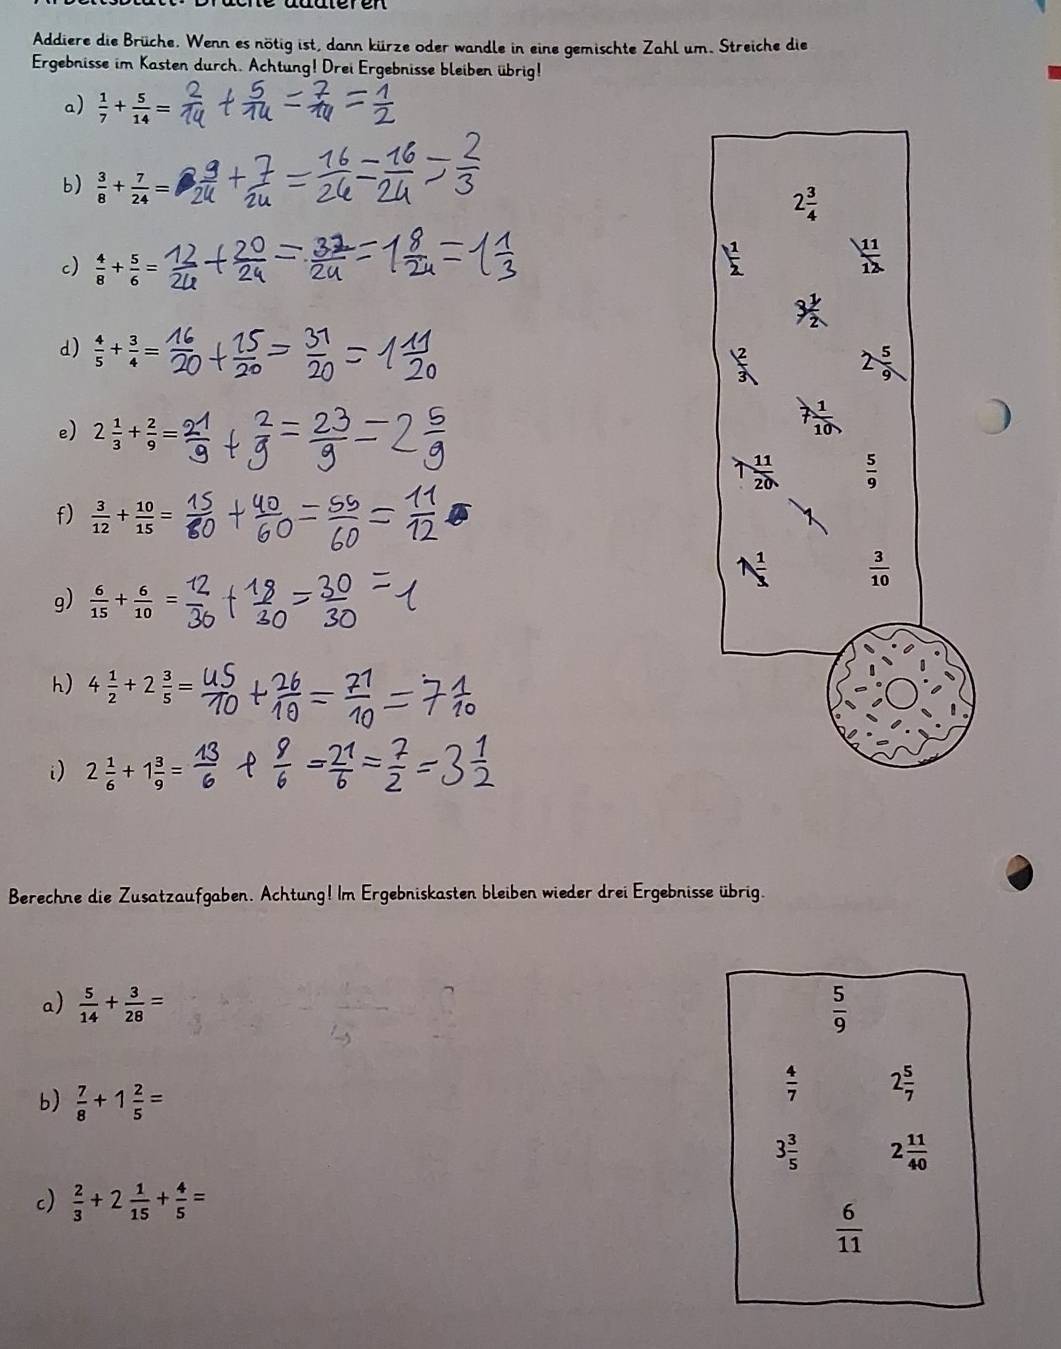 Addiere die Brüche. Wenn es nötig ist, dann kürze oder wandle in eine gemischte Zahl um. Streiche die
Ergebnisse im Kasten durch. Achtung! Drei Ergebnisse bleiben übrig!
a) 1/7 + 5/14 = 2/14 + 5/14 = 7/14 = 1/2
b) 3/8 + 7/24 = 9/24 + 7/24 = 16/24 = 16/24 = 2/3
c) 4/8 + 5/6 = 12/24 + 20/24 = 32/24 = 1 8/24 = 1 1/3
d) 4/5 + 3/4 = 16/20 + 15/20 = 31/20 = 1 11/20
e) 2 1/3 + 2/9 = 21/9 + 2/9 = 23/9 = 2 5/9
f) 3/12 + 10/15 = 15/60 + 40/60 = 55/60 = 11/12
g) 6/15 + 6/10 = 12/30 + 18/30 = 30/30 = 1
h) 4 1/2 + 2 3/5 = 45/10 + 26/10 = 71/10 = 7 1/10
i) 2 1/6 + 1 3/9 = 13/6 + 8/6 = 21/6 = 7/2 = 3 1/2
2 3/4
1/2 11/12
3 1/2
2/3 2 5/9
7 1/10
1 11/20 5/9
1
1 1/3 3/10
Berechne die Zusatzaufgaben. Achtung! Im Ergebniskasten bleiben wieder drei Ergebnisse übrig.
a) 5/14 + 3/28 =
b) 7/8 + 1 2/5 =
c) 2/3 + 2 1/15 + 4/5 =
5/9
4/7 2 5/7
3 3/5 2 11/40
6/11